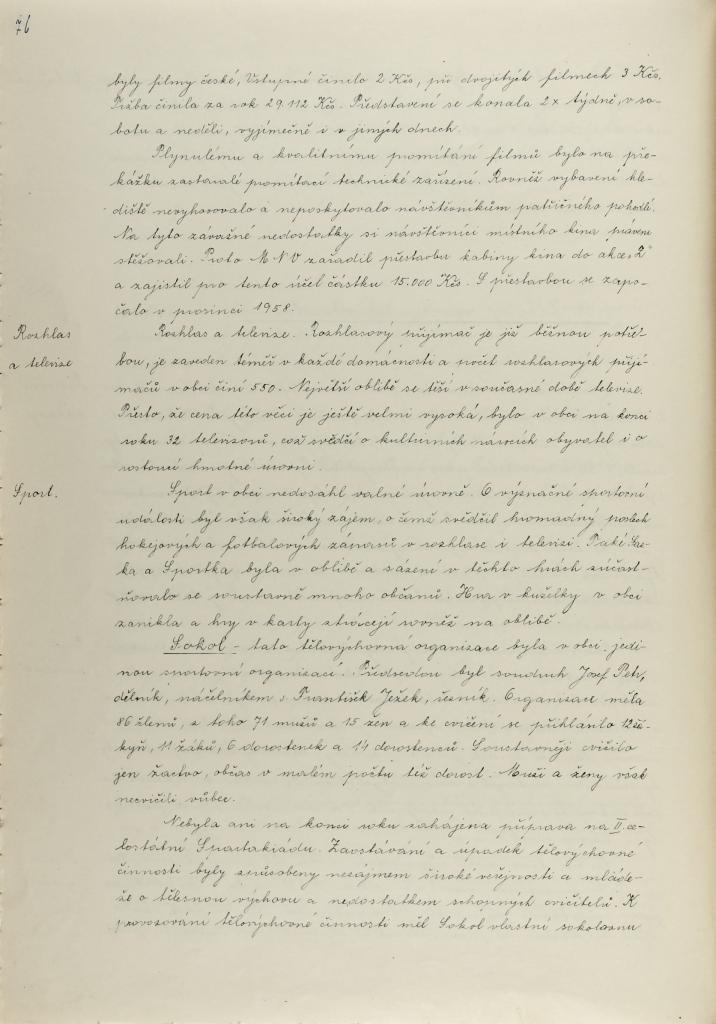 76
byly filmy české, Vstupné činilo 2 Kčs, při dvojitých filmech 3 Kčs.
Tržba činila za rok 29.112 Kčs. Představení se konala 2x týdně, v so-
botu a neděli, vyjímečně i v jiných dnech.
Plynulému a kvalitnímu promítání filmů bylo na pře-
kážku zastaralé promítací technické zařízení. Rovněž vybavení hle-
diště nevyhovovalo a neposkytovalo návštěvníkům patřičného pohodlí.
Na tyto závažné nedostatky si návštěvníci místního kina právem
stěžovali. Proto MNV zařadil přestavbu kabiny kina do akce „Z"
a zajistil pro tento účel částku 15.000 Kčs. S přestavbou se zapo-
čalo v prosinci 1958.
Rozhlas
a televize
Rozhlas a televize. Rozhlasový přijímač je již běžnou potře-
bou, je zaveden téměř v každé domácnosti a počet rozhlasových přijí-
mačů v obci činí 550. Největší oblibě se těší v současné době televize.
Přesto, že cena této věci je ještě velmi vysoká, bylo v obci na konci
roku 32 televizorů, což svědčí o kulturních nárocích obyvatel i o
rostoucí hmotné úrovni.
Sport.
Sport v obci nedosáhl valné úrovně. O význačné sportovní
události byl však široký zájem, o čemž svědčil hromadný poslech
hokejových a fotbalových zápasů v rozhlase i televizi. Také Saz-
ka a Sportka byla v oblibě a sázení v těchto hrách zúčast-
ňovalo se soustavně mnoho občanů. Hra v kuželky v obci
zanikla a hry v karty ztrácejí rovněž na oblibě.
Sokol - tato tělovýchovná organizace byla v obci jedi-
nou sportovní organizací. Předsedou byl soudruh Josef Petr,
dělník, náčelníkem s. František Ježek, řezník. Organizace měla
86 členů, z toho 71 mužů a 15 žen a ke cvičení se přihlásilo 12 žá-
kyň, 11 žáků, 6 dorostenek a 14 dorostenců. Soustavněji cvičilo
jen žactvo, občas v malém počtu též dorost. Muži a ženy však
necvičili vůbec.
Nebyla ani na konci roku zahájena příprava na II. ce-
lostátní Spartakiádu. Zaostávání a úpadek tělovýchovné
činnosti byly způsobeny nezájmem široké veřejnosti a mláde-
že o tělesnou výchovu a nedostatkem schopných cvičitelů. K
provozování tělovýchovné činnosti měl Sokol vlastní sokolovnu